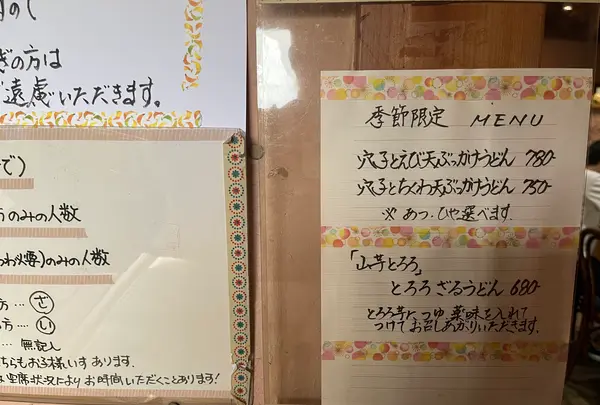 ぎの方は
ご遠慮いただきます。
で)
うのみの人数
わ必要)のみの人数
方…さ
方…い
…無記入
ちらもお子様いす あります。
は空席状況により お時間いただくこともあります!
季節限定 MENU
穴子とえび天ぶっかけうどん 780-
穴子とちくわ天ぶっかけうどん 750-
※ あつ・ひや選べます
「山芋とろろ」
とろろざるうどん 680-
とろろ芋に つゆ 薬味を入れて
つけてお召しあがりいただきます。